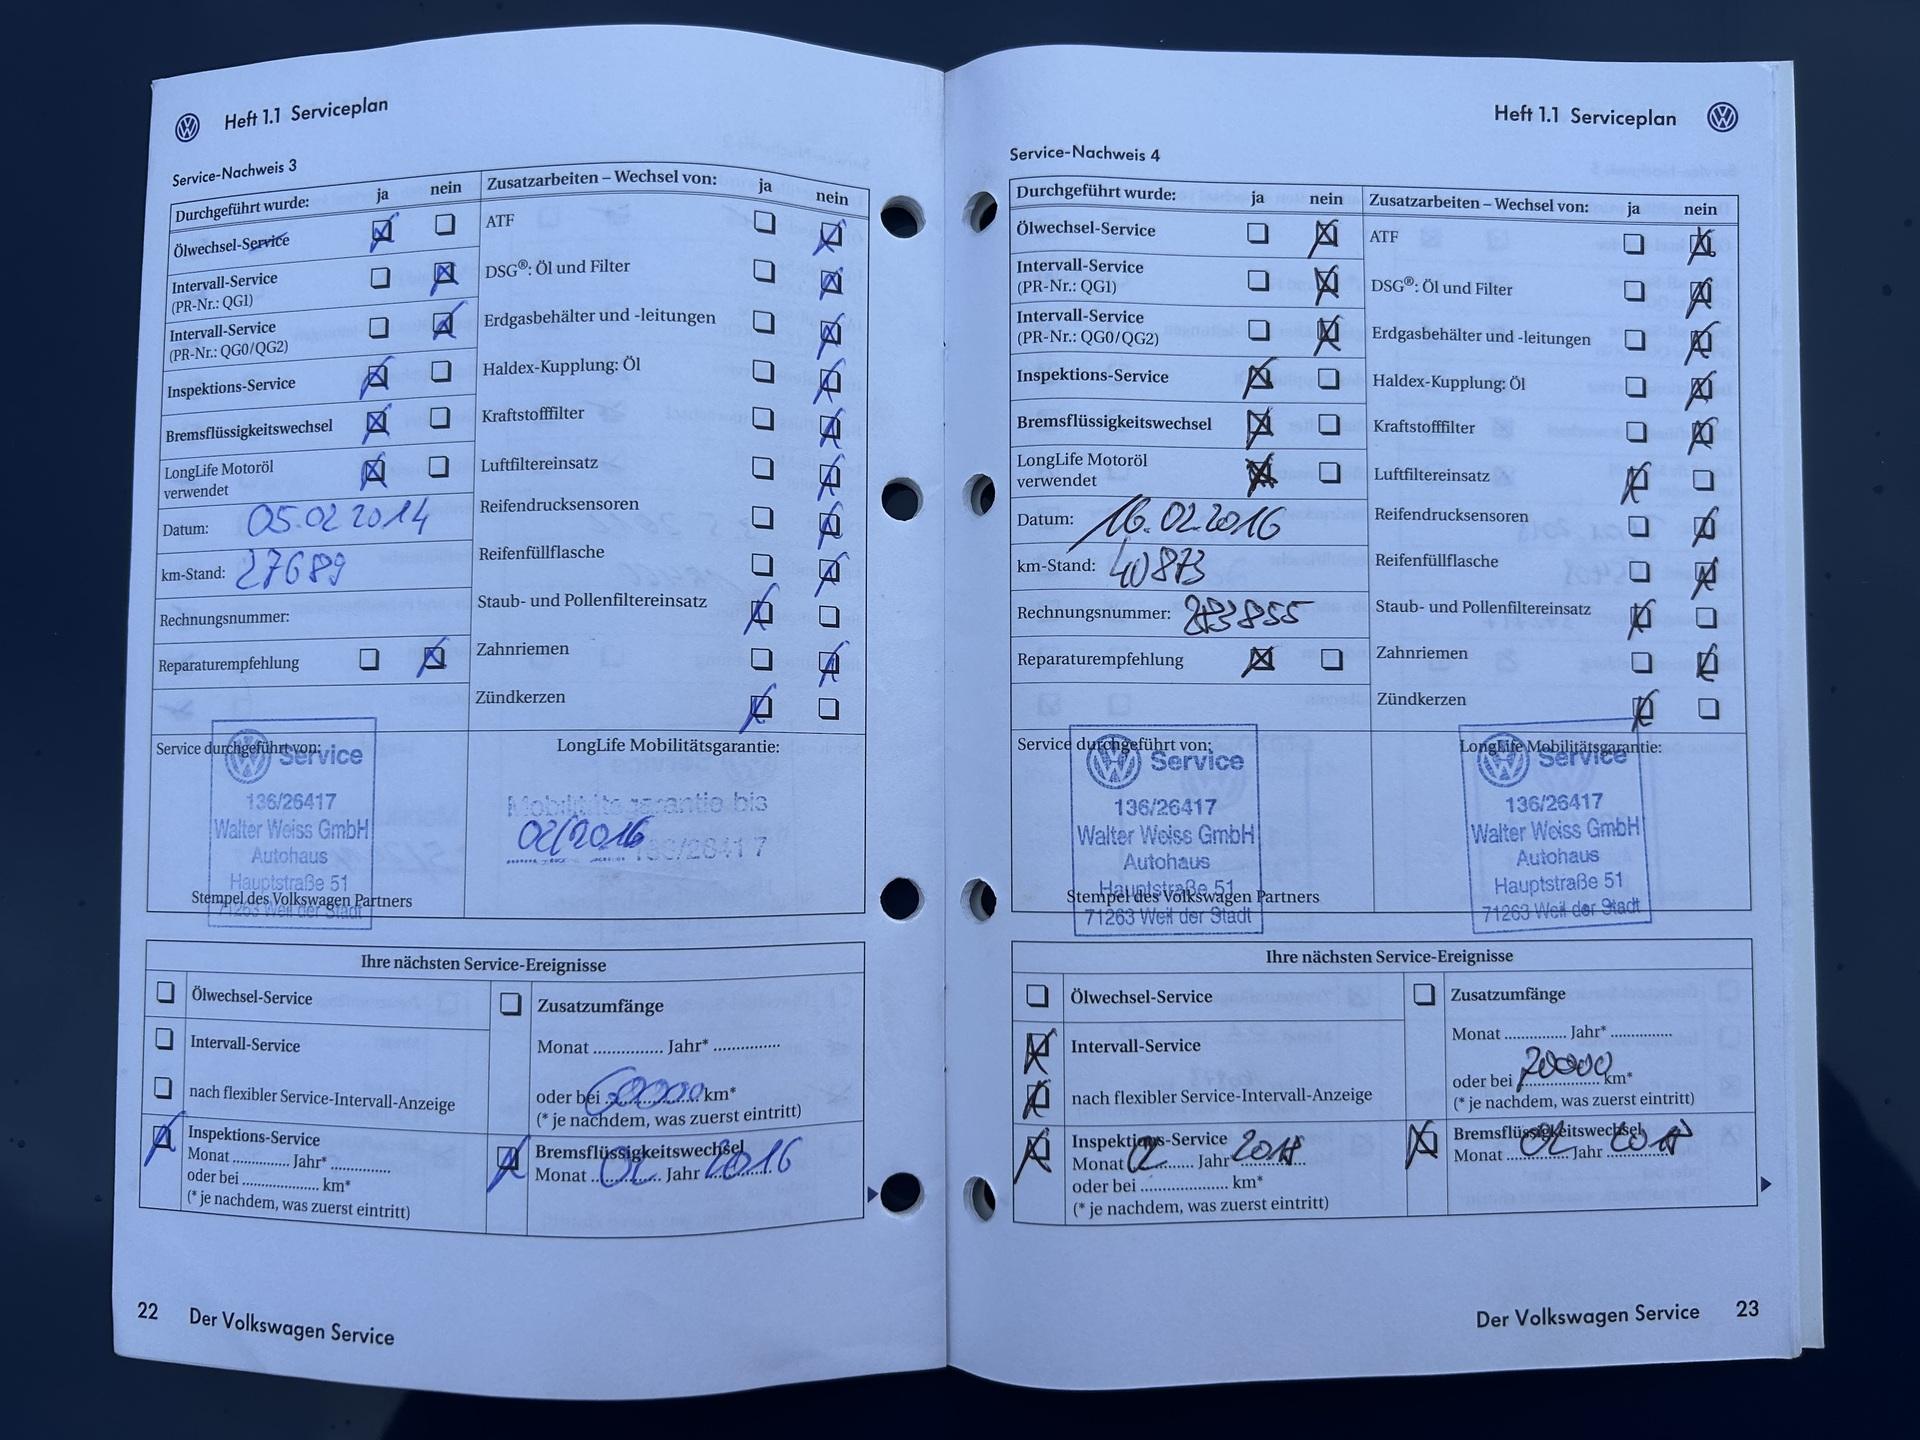 Heft 1.1 Serviceplan
Service-Nachweis 3
Durchgeführt wurde: ja nein
Ölwechsel-Service
Intervall-Service
(PR-Nr.: QG1)
Intervall-Service
(PR-Nr.: QG0/QG2)
Inspektions-Service
Bremsflüssigkeitswechsel
LongLife Motoröl
verwendet
Datum: 05.02 2014
km-Stand: 27689
Rechnungsnummer:
Reparaturempfehlung
Zusatzarbeiten – Wechsel von: ja nein
ATF
DSG®: Öl und Filter
Erdgasbehälter und -leitungen
Haldex-Kupplung: Öl
Kraftstofffilter
Luftfiltereinsatz
Reifendrucksensoren
Reifenfüllflasche
Staub- und Pollenfiltereinsatz
Zahnriemen
Zündkerzen
Service durchgeführt von:
Service
136/26417
Walter Weiss GmbH
Autohaus
Hauptstraße 51
71263 Weil der Stadt
Stempel des Volkswagen Partners
LongLife Mobilitätsgarantie:
Mobilitätsgarantie bis
02/2016
136/26417
Ihre nächsten Service-Ereignisse
Ölwechsel-Service
Intervall-Service
nach flexibler Service-Intervall-Anzeige
Inspektions-Service
Monat .............. Jahr* ..............
oder bei .................... km*
(* je nachdem, was zuerst eintritt)
Zusatzumfänge
Monat .............. Jahr* ..............
oder bei 60000 km*
(* je nachdem, was zuerst eintritt)
Bremsflüssigkeitswechsel
Monat 02 Jahr 2016
22 Der Volkswagen Service
Heft 1.1 Serviceplan
Service-Nachweis 4
Durchgeführt wurde: ja nein
Ölwechsel-Service
Intervall-Service
(PR-Nr.: QG1)
Intervall-Service
(PR-Nr.: QG0/QG2)
Inspektions-Service
Bremsflüssigkeitswechsel
LongLife Motoröl
verwendet
Datum: 16.02.2016
km-Stand: 40873
Rechnungsnummer:
Reparaturempfehlung
Zusatzarbeiten – Wechsel von: ja nein
ATF
DSG®: Öl und Filter
Erdgasbehälter und -leitungen
Haldex-Kupplung: Öl
Kraftstofffilter
Luftfiltereinsatz
Reifendrucksensoren
Reifenfüllflasche
Staub- und Pollenfiltereinsatz
Zahnriemen
Zündkerzen
Service durchgeführt von:
Service
136/26417
Walter Weiss GmbH
Autohaus
Hauptstraße 51
Stempel des Volkswagen Partners
71263 Weil der Stadt
LongLife Mobilitätsgarantie:
Service
136/26417
Walter Weiss GmbH
Autohaus
Hauptstraße 51
71263 Weil der Stadt
Ihre nächsten Service-Ereignisse
Ölwechsel-Service
Intervall-Service
nach flexibler Service-Intervall-Anzeige
Inspektions-Service
Monat 02 Jahr* 2018
oder bei .................... km*
(* je nachdem, was zuerst eintritt)
Zusatzumfänge
Monat .............. Jahr* ..............
oder bei 70000 km*
(* je nachdem, was zuerst eintritt)
Bremsflüssigkeitswechsel
Monat 02 Jahr 2018
Der Volkswagen Service 23